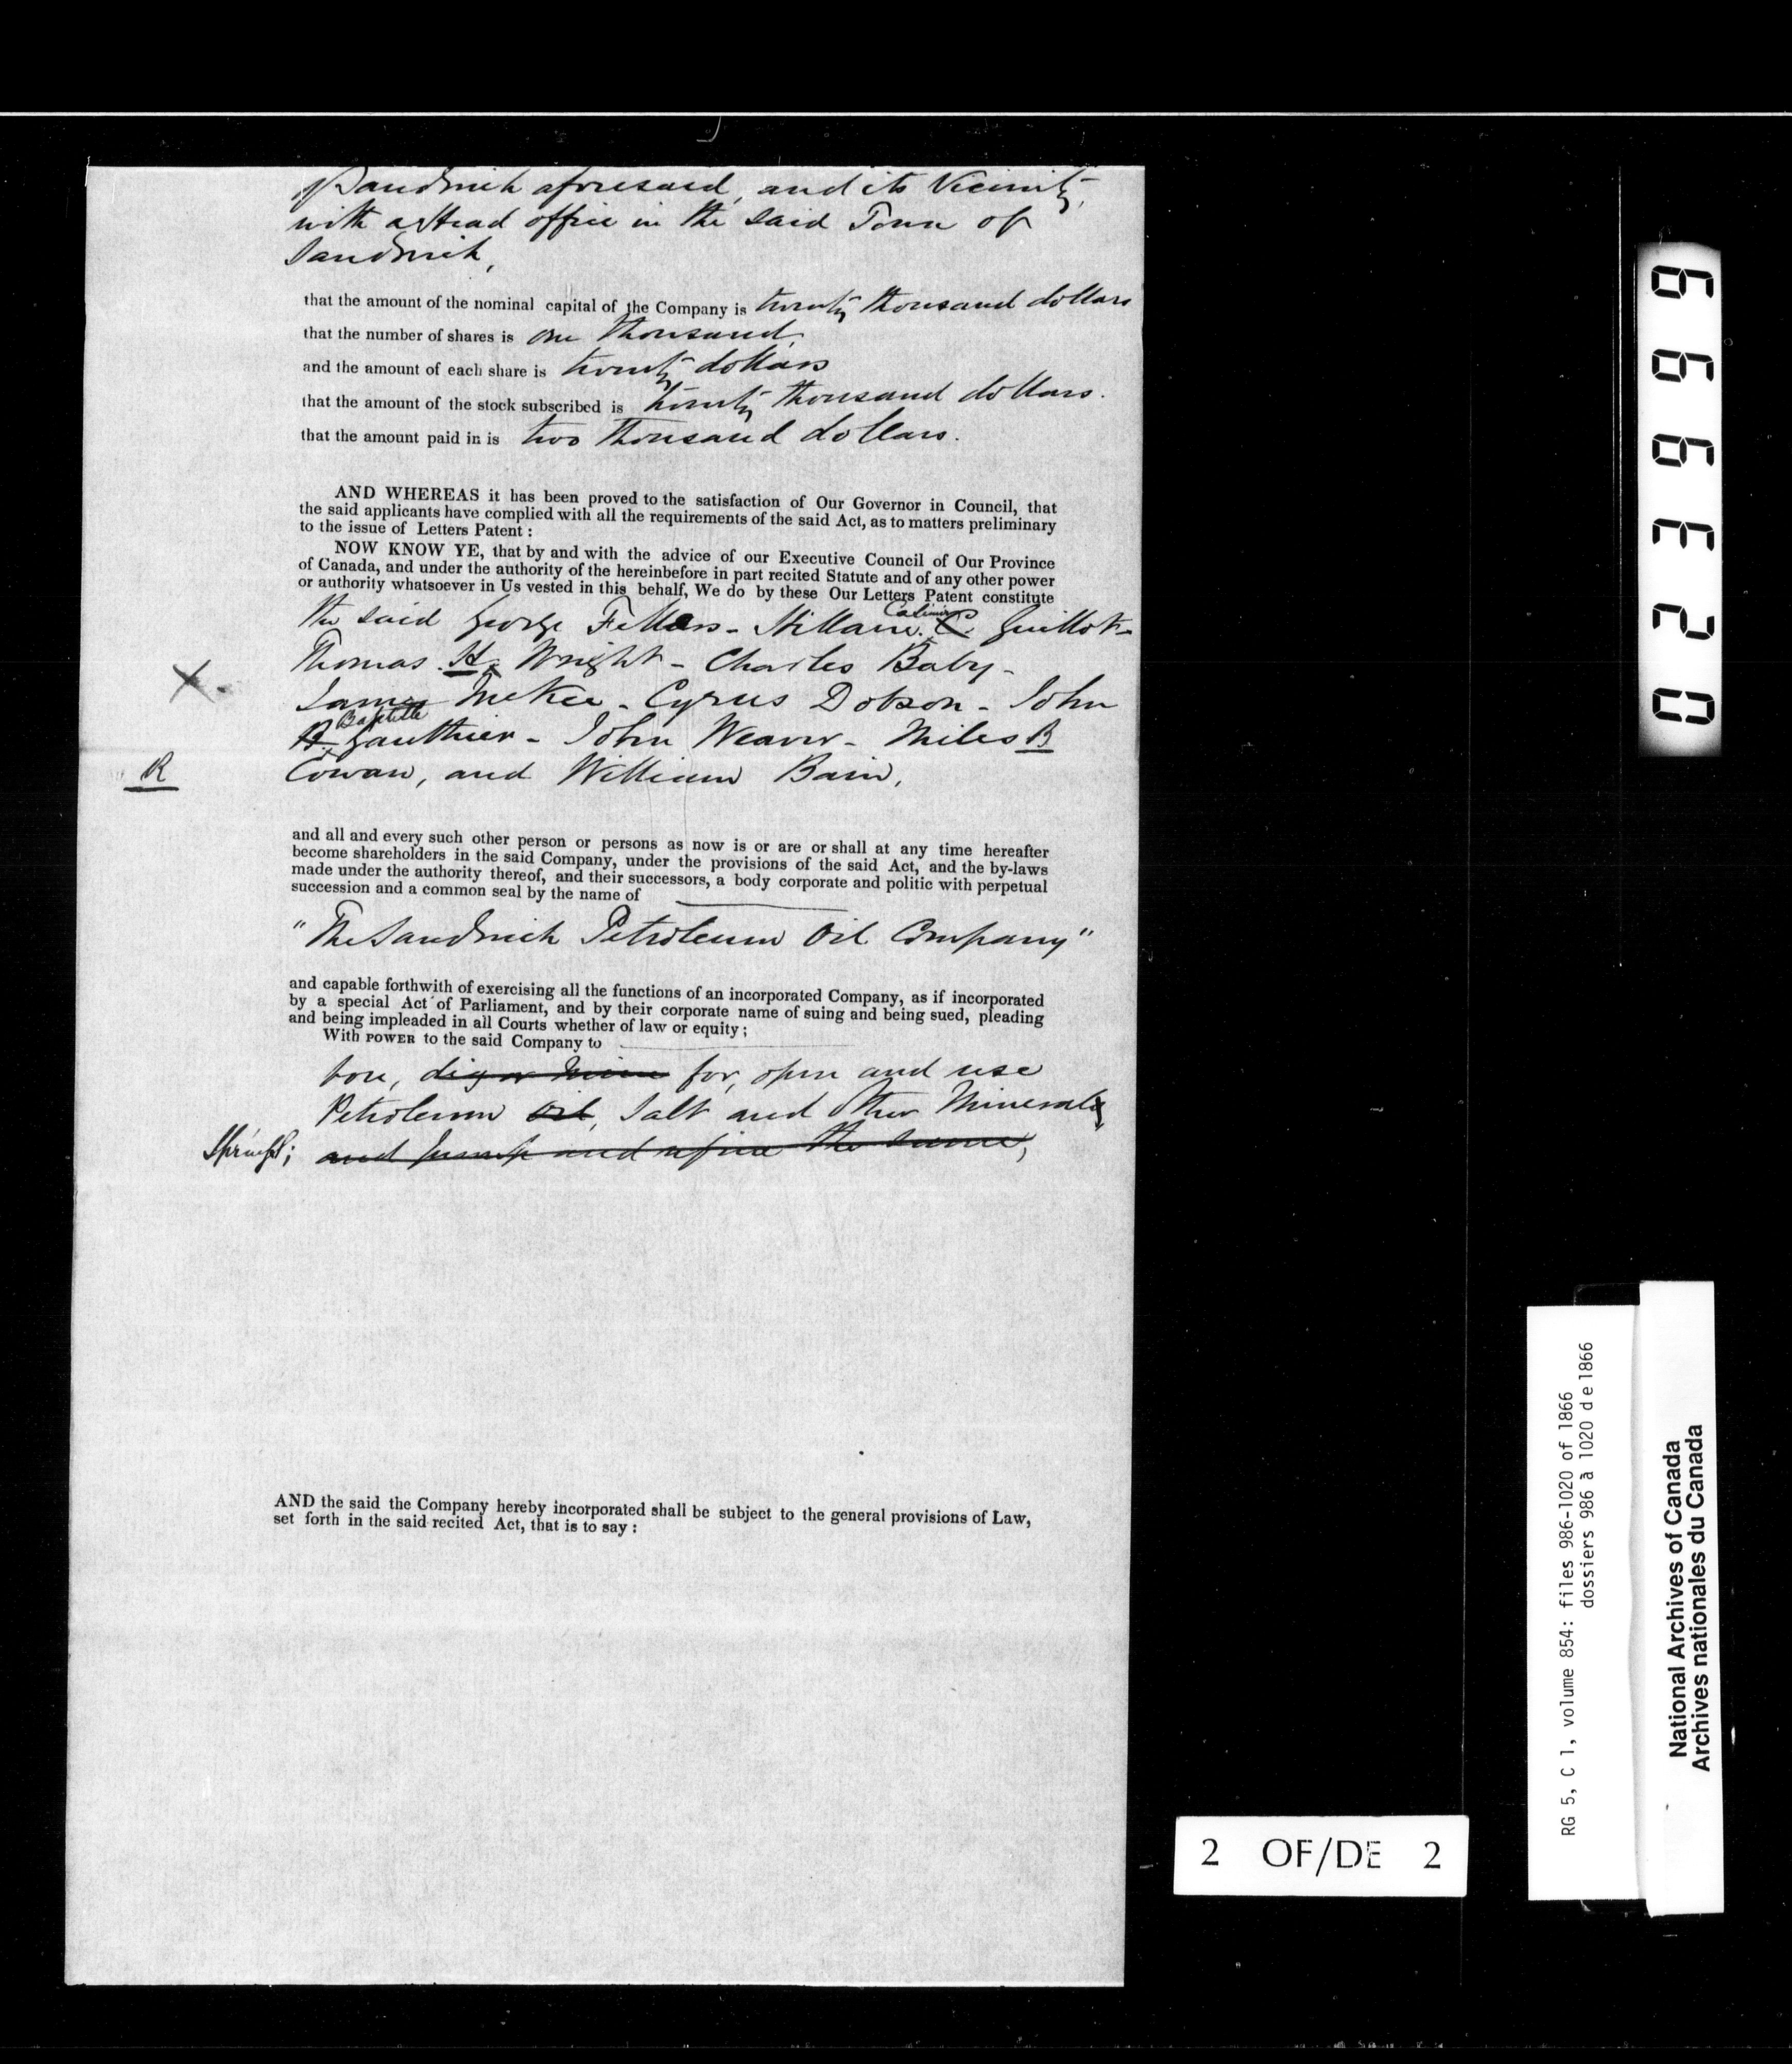 Sandwich aforesaid, and its Vicinity,
with a Head office in the said Town of
Sandwich,
that the amount of the nominal capital of the Company is twenty thousand dollars
that the number of shares is one thousand,
and the amount of each share is twenty dollars
that the amount of the stock subscribed is twenty thousand dollars.
that the amount paid in is two thousand dollars.
AND WHEREAS it has been proved to the satisfaction of Our Governor in Council, that
the said applicants have complied with all the requirements of the said Act, as to matters preliminary
to the issue of Letters Patent :
NOW KNOW YE, that by and with the advice of our Executive Council of Our Province
of Canada, and under the authority of the hereinbefore in part recited Statute and of any other power
or authority whatsoever in Us vested in this behalf, We do by these Our Letters Patent constitute
Casimir
the said George Fellers - Hillaire C. Guillot -
Thomas H. Wright - Charles Baby -
X.
James McKee - Cyrus Dobson - John
Baptiste
B. Gauthier - John Weaver - Miles B
R
Cowan, and William Bain,
and all and every such other person or persons as now is or are or shall at any time hereafter
become shareholders in the said Company, under the provisions of the said Act, and the by-laws
made under the authority thereof, and their successors, a body corporate and politic with perpetual
succession and a common seal by the name of
"The Sandwich Petroleum Oil Company"
and capable forthwith of exercising all the functions of an incorporated Company, as if incorporated
by a special Act of Parliament, and by their corporate name of suing and being sued, pleading
and being impleaded in all Courts whether of law or equity ;
With POWER to the said Company to
bore, dig or mine for, open and use
Petroleum Oil, Salt and other Minerals
Springs; and pump and refine the same,
AND the said the Company hereby incorporated shall be subject to the general provisions of Law,
set forth in the said recited Act, that is to say :
023999
2 OF/DE 2
RG 5, C 1, volume 854: files 986-1020 of 1866
dossiers 986 à 1020 de 1866
National Archives of Canada
Archives nationales du Canada